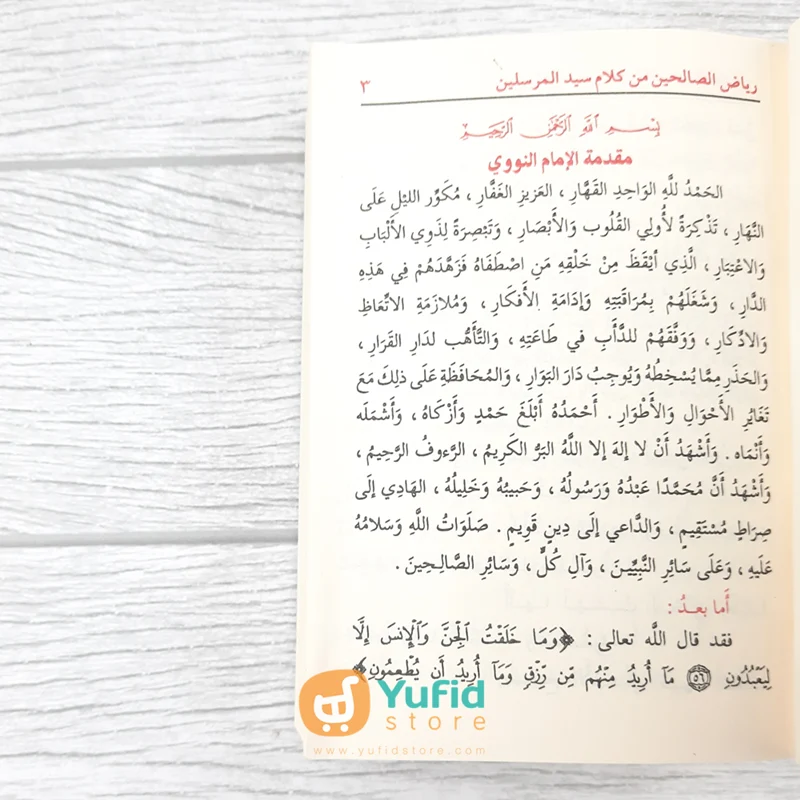 رياض الصالحين من كلام سيد المرسلين ٣
بِسْمِ اللَّهِ الرَّحْمَٰنِ الرَّحِيمِ
مقدمة الإمام النووي
الحَمْدُ للهِ الوَاحِدِ القَهَّارِ ، العَزِيزِ الغَفَّارِ ، مُكَوِّرِ الليْلِ عَلَى
النَّهَارِ ، تَذْكِرَةً لأُولِي القُلُوبِ وَالأَبْصَارِ ، وَتَبْصِرَةً لِذَوِي الأَلْبَابِ
وَالاعْتِبَارِ ، الَّذِي أيْقَظَ مِنْ خَلْقِهِ مَنِ اصْطَفَاهُ فَزَهَّدَهُمْ فِي هَذِهِ
الدَّارِ ، وَشَغَلَهُمْ بِمُرَاقَبَتِهِ وَإِدَامَةِ الأَفكَارِ ، وَمُلازَمَةِ الاتِّعَاظِ
وَالادِّكَارِ ، وَوَفَّقَهُمْ للدَّأَبِ في طَاعَتِهِ ، وَالتَّأَهُّبِ لدَارِ القَرَارِ ،
وَالحَذَرِ مِمَّا يُسْخِطُهُ وَيُوجِبُ دَارَ البَوَارِ ، وَالمُحَافَظَةِ عَلَى ذلِكَ مَعَ
تَغَايُرِ الأَحْوَالِ وَالأَطْوَارِ . أَحْمَدُهُ أَبْلَغَ حَمْدٍ وَأَزْكَاهُ ، وَأَشْمَلَه
وَأَنْمَاه . وَأَشْهَدُ أَنْ لا إلهَ إلا اللَّهُ البَرُّ الكَرِيمُ ، الرَّءوفُ الرَّحِيمُ ،
وَأَشْهَدُ أَنَّ مُحَمَّدًا عَبْدُهُ وَرَسُولُهُ ، وَحَبِيبُهُ وَخَلِيلُهُ ، الهَادِي إلَى
صِرَاطٍ مُسْتَقِيمٍ ، وَالدَّاعي إلَى دِينٍ قَوِيمٍ . صَلَوَاتُ اللَّهِ وَسَلامُهُ
عَلَيهِ ، وَعَلَى سَائِرِ النَّبِيِّينَ ، وَآلِ كُلٍّ ، وَسَائِرِ الصَّالِحِينَ .
أما بعدُ :
فقد قال الله تعالى : ﴿وَمَا خَلَقْتُ الْجِنَّ وَالْإِنسَ إِلَّا
لِيَعْبُدُونِ ٥٦ مَا أُرِيدُ مِنْهُم مِّن رِّزْقٍ وَمَا أُرِيدُ أَن يُطْعِمُونِ﴾
Yufid
store
www.yufidstore.com